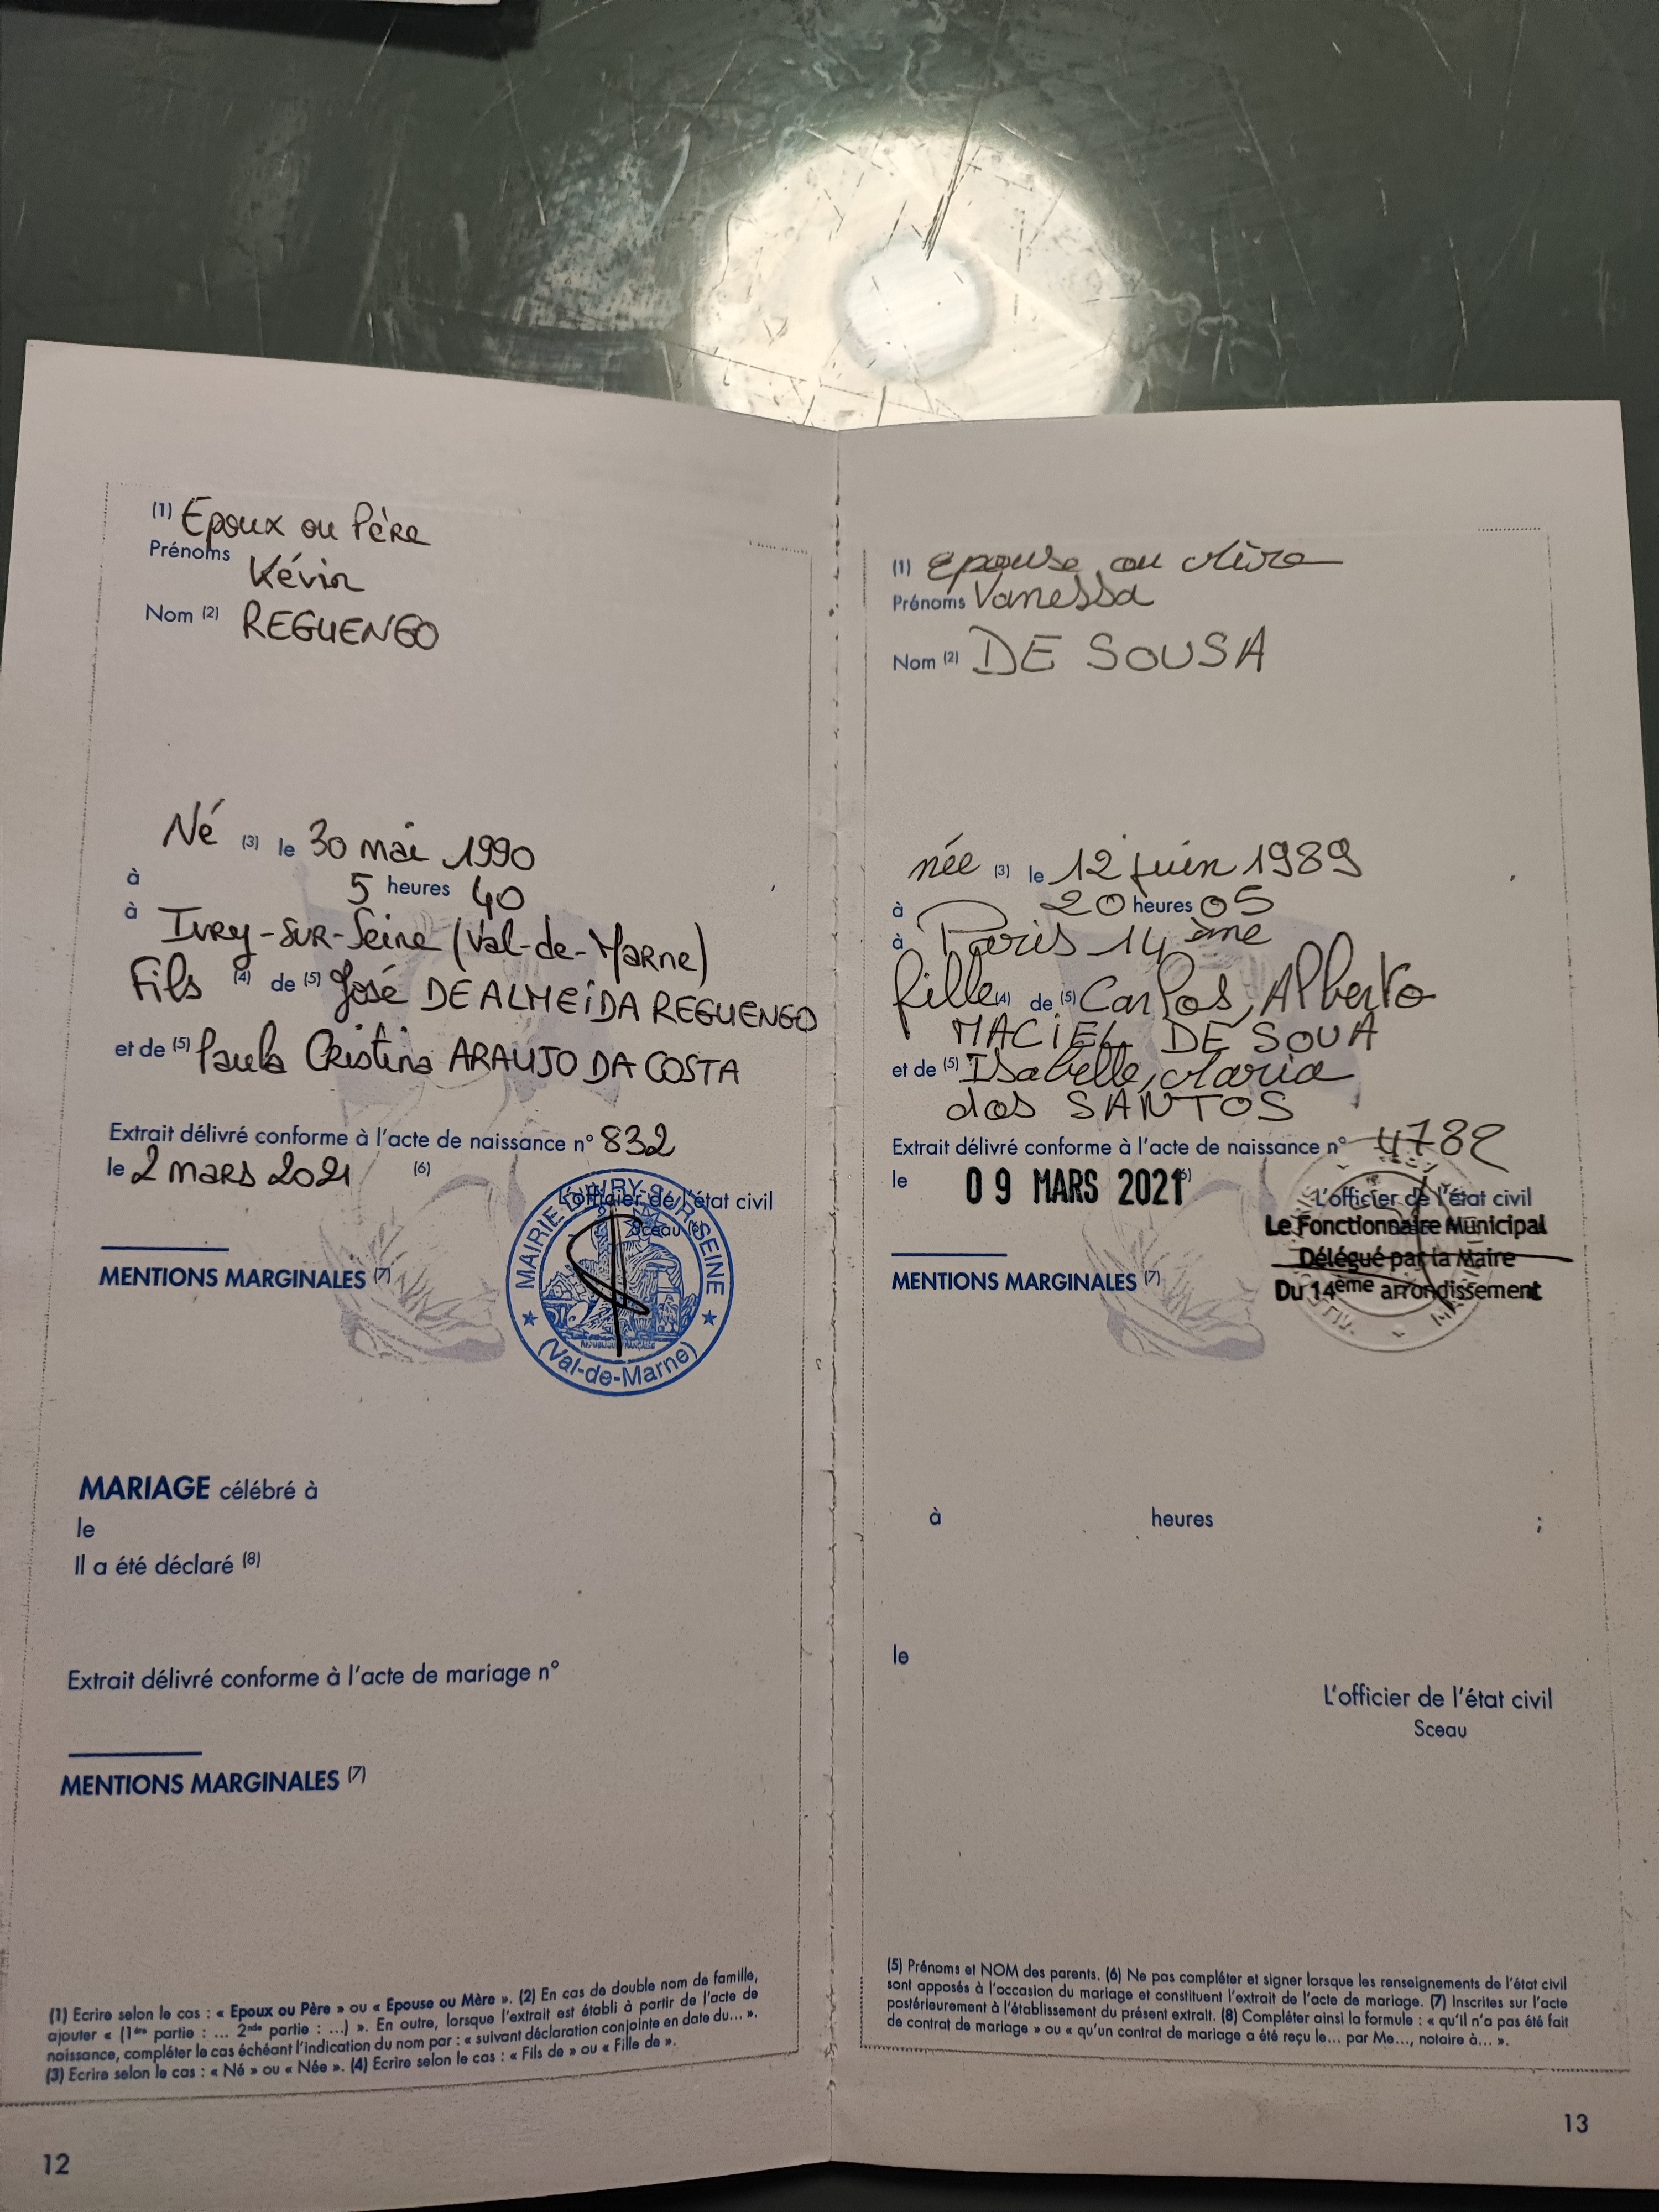 (1) Epoux ou Père
Prénoms Kévin
Nom (2) REGUENGO
Né (3) le 30 mai 1990
à 5 heures 40 ,
à Ivry-sur-Seine (Val-de-Marne)
Fils (4) de (5) José DE ALMEIDA REGUENGO
et de (5) Paula Cristina ARAUJO DA COSTA
Extrait délivré conforme à l'acte de naissance n° 832
le 2 mars 2021 (6)
L'officier de l'état civil
Sceau (6)
MAIRIE D'IVRY-SUR-SEINE
RÉPUBLIQUE FRANÇAISE
(Val-de-Marne)
MENTIONS MARGINALES (7)
MARIAGE célébré à
le
Il a été déclaré (8)
Extrait délivré conforme à l'acte de mariage n°
MENTIONS MARGINALES (7)
(1) Ecrire selon le cas : « Epoux ou Père » ou « Epouse ou Mère ». (2) En cas de double nom de famille,
ajouter « (1ère partie : ... 2nde partie : ...) ». En outre, lorsque l'extrait est établi à partir de l'acte de
naissance, compléter le cas échéant l'indication du nom par : « suivant déclaration conjointe en date du... ».
(3) Ecrire selon le cas : « Né » ou « Née ». (4) Ecrire selon le cas : « Fils de » ou « Fille de ».
12
(1) Epouse ou Mère
Prénoms Vanessa
Nom (2) DE SOUSA
née (3) le 12 juin 1989
à 20 heures 05 ,
à Paris 14ème
fille (4) de (5) Carlos, Alberto
MACIEL DE SOUA
et de (5) Isabelle, Maria
dos SANTOS
Extrait délivré conforme à l'acte de naissance n° 4782
le 09 MARS 2021 (6)
L'officier de l'état civil
Le Fonctionnaire Municipal
Délégué par la Maire
Du 14ème arrondissement
MENTIONS MARGINALES (7)
à heures ;
le
L'officier de l'état civil
Sceau
(5) Prénoms et NOM des parents. (6) Ne pas compléter et signer lorsque les renseignements de l'état civil
sont apposés à l'occasion du mariage et constituent l'extrait de l'acte de mariage. (7) Inscrites sur l'acte
postérieurement à l'établissement du présent extrait. (8) Compléter ainsi la formule : « qu'il n'a pas été fait
de contrat de mariage » ou « qu'un contrat de mariage a été reçu le... par Me..., notaire à... ».
13